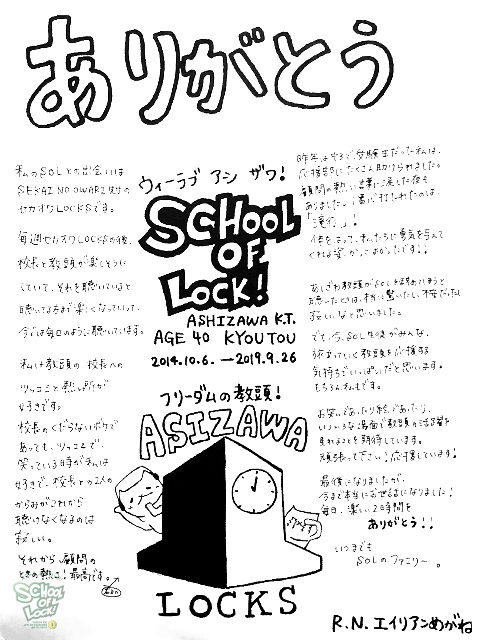 ありがとう
私のSOLとの出会いは
SEKAI NO OWARI先生の
セカオワLOCKSです。
毎週セカオワLOCKSの後、
校長と教頭が楽しそうに
していて、それを聴いていると
聴いてる方が楽しくなっていって、
今では毎日のように聴いています。
私は教頭の校長への
ツッコミと熱い所が
好きです。
校長のくだらないボケで
あっても、ツッコんで、
笑っている時が私は
好きで、校長との2人の
からみがこれから
聴けなくなるのは
寂しい。
それから、顧問の
ときの熱さ!最高です。
ウィーラブ アシザワ!
SCHOOL
OF
LOCK!
ASHIZAWA K.T.
AGE 40 KYOUTOU
2014.10.6. →2019.9.26
フリーダムの教頭!
ASIZAWA
LOCKS
昨年は守る受験生だった私は、
応援部にたくさん助けられました。
顧問の熱い言葉に涙した夜も
ありました。
「滝行」!
体をはって、私たちに勇気を与えて
くれる姿、かっこよかったです!!
あしざわ教頭がSOLを
聴いた時は、本当に驚いたし、
寂しいなと思いました。
でも、今、SOL生徒がみんな、
旅立っていく教頭を応援する
気持ちでいっぱいだと思います。
もちろん私もです。
お笑いであったり絵であったり、
いろいろな場面で教頭の活躍を
見れることを期待しています。
頑張って下さい!応援しています!
最後になりましたが、
今まで本当にお世話になりました!
毎日、楽しい2時間を
ありがとう!!
いつまでも
SOLのファミリ〜。
R.N. エイリアンめがね
SCHOOL
OF
LOCK!